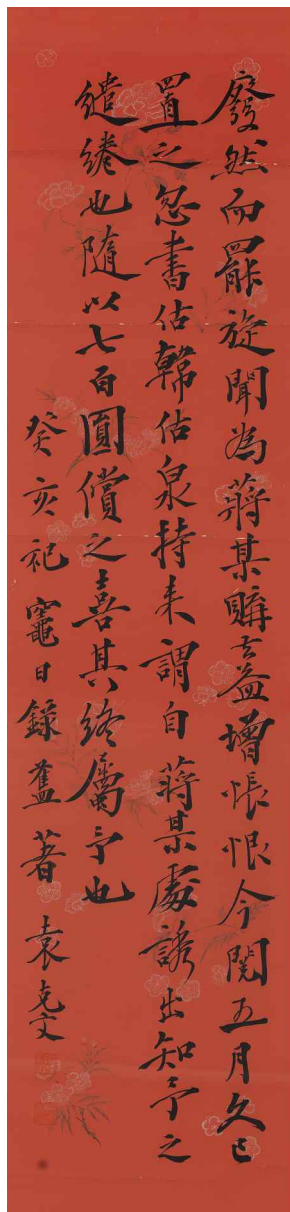 廢然而罷旋聞為蔣某購去益增悵恨今閱五月久已
置之忽書估韓估泉持来謂自蔣某處誘出知予之
繾綣也隨以七百圓償之喜其終屬予也
癸亥祀竈日錄舊著 袁克文